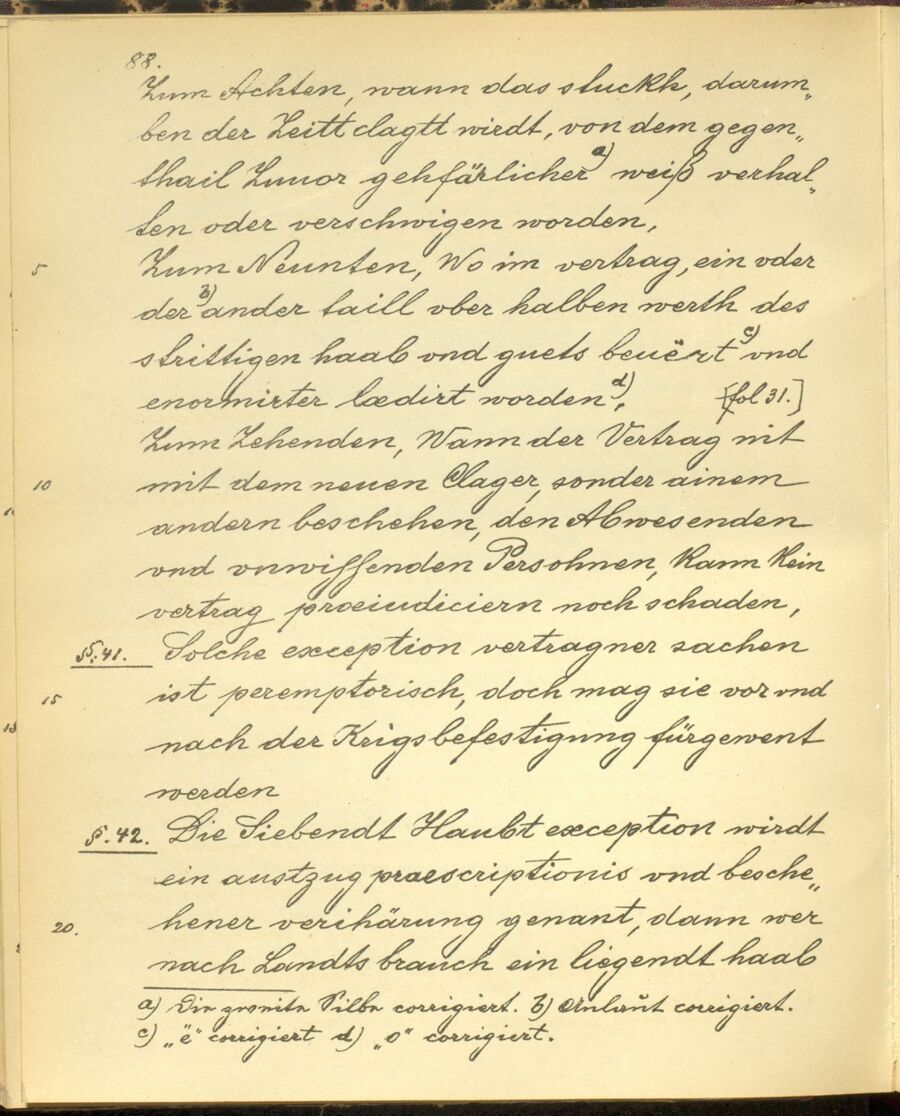 88.
Zum Achten, wann das stuckh, darum„
ben der Zeitt clagtt wirdt, von dem gegen„
thail Zuuor gehfärlicher a) weiß verhal„
ten oder verschwigen worden,
5 Zum Neunten, Wo im vertrag, ein oder
der b) ander taill vber halben werth des
strittigen haab vnd guets beuërt c) vnd
enormirter lædirt worden d), [fol 31.]
Zum Zehenden, Wann der Vertrag nit
10 mit dem neuen Clager, sonder ainem
andern beschehen, den Abwesenden
vnd vnwissenden Persohnen, kann kein
vertrag præiudiciern noch schaden,
§.41. Solche exception vertragner sachen
15 ist peremptorisch, doch mag sie vor vnd
nach der Krigsbefestigung fürgewent
werden
§.42. Die Siebendt Haubt exception wirdt
ein austzug praescriptionis vnd besche„
20. hener verihärung genant, dann wer
nach Landts brauch ein liegendt haab
a) Die zweite Silbe corrigiert. b) Anlaut corrigiert.
c) „ë“ corrigiert d) „o“ corrigiert.